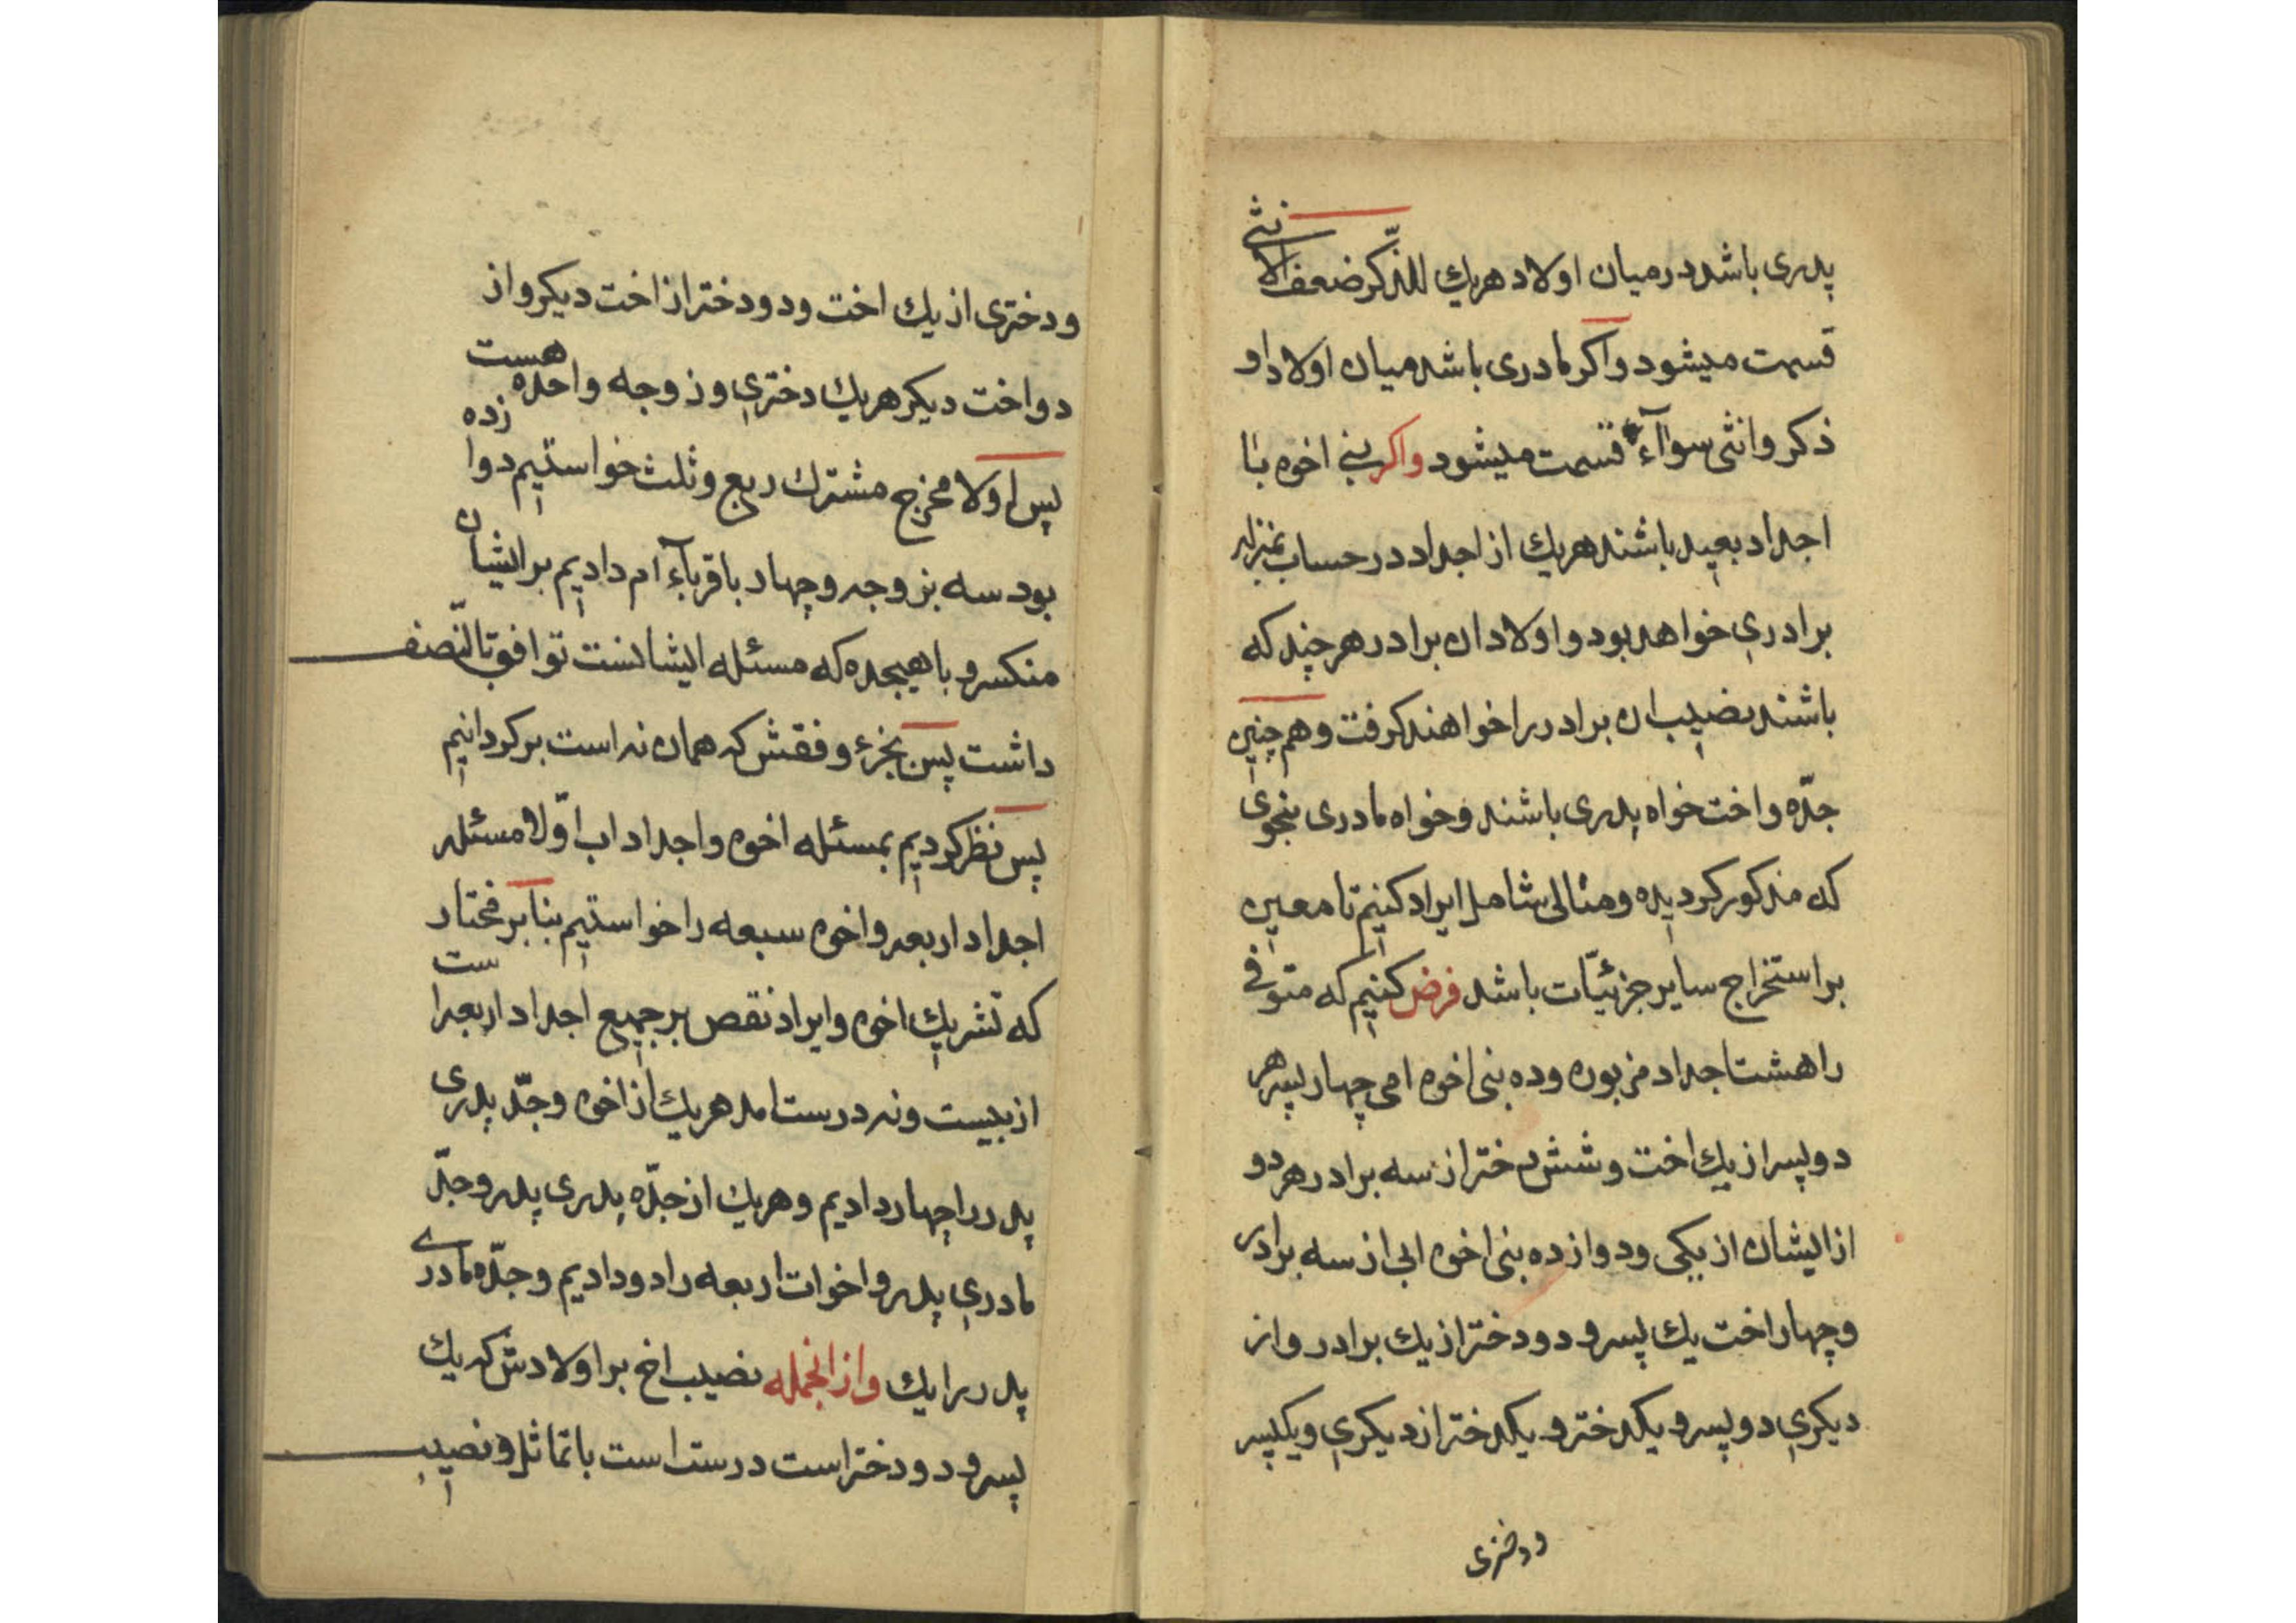 پدری باشد درمیان اولاد هریك للذّکر ضعف الانثی
قسمت میشود واکر مادری باشد میان اولاد او
ذکر وانثی سوآاء قسمت میشود واکر بنی اخوه با
اجداد بعید باشند هریك از اجداد در حساب بمنزله
برادری خواهد بود و اولاد ان برادر هرچند که
باشند نصیب ان برادر را خواهند کرفت وهم چنین
جدّه واخت خواه پدری باشند وخواه مادری بنحوی
که مذکور کردیده ومثالی شامل ایراد کنیم تا معین
بر استخراج سایر جزئیّات باشد فرض کنیم که متوفی
را هشت اجداد مزبوره وده بنی اخوه امی چهار پسر هر
دو پسر از یك اخت وشش دختر از سه برادر هر دو
از ایشان از یکی ودوازده بنی اخوه ابی از سه برادر
وچهار اخت یك پسر ودو دختر از یك برادر واز
دیکری دو پسر و یکدختر و یکدختر از دیکری ویکپسر
ودختری
ودختری از یك اخت ودو دختر از اخت دیکر واز
دو اخت دیکر هریك دختری وزوجه واحده هست
پس اولا مخرج مشترك ربع وثلث خواستیم دوازده
بود سه بزوجه وچهار باقرباء ام دادیم بر ایشان
منکسر و باهیجده که مسئله ایشانست توافق بالنّصف
داشت پس بجزء وفقش که همان نه است برکردانیم
پس نظر کردیم بمسئله اخوه واجداد اب اوّلا مسئله
اجداد اربعه واخوه سبعه را خواستیم بنابر مختار
که تشریك اخوه وایراد نقص بر جمیع اجداد اربعه است
از بیست ونه درست امد هریك از اخوه وجدّ پدری
پدر را چهار دادیم وهریك از جدّه پدری پدر وجدّ
مادری پدر واخوات اربعه را دو دادیم وجدّه مادری
پدر را یك وازانجمله نصیب اخ بر اولادش که یك
پسر و دو دختر است درست است باتماثل ونصیب